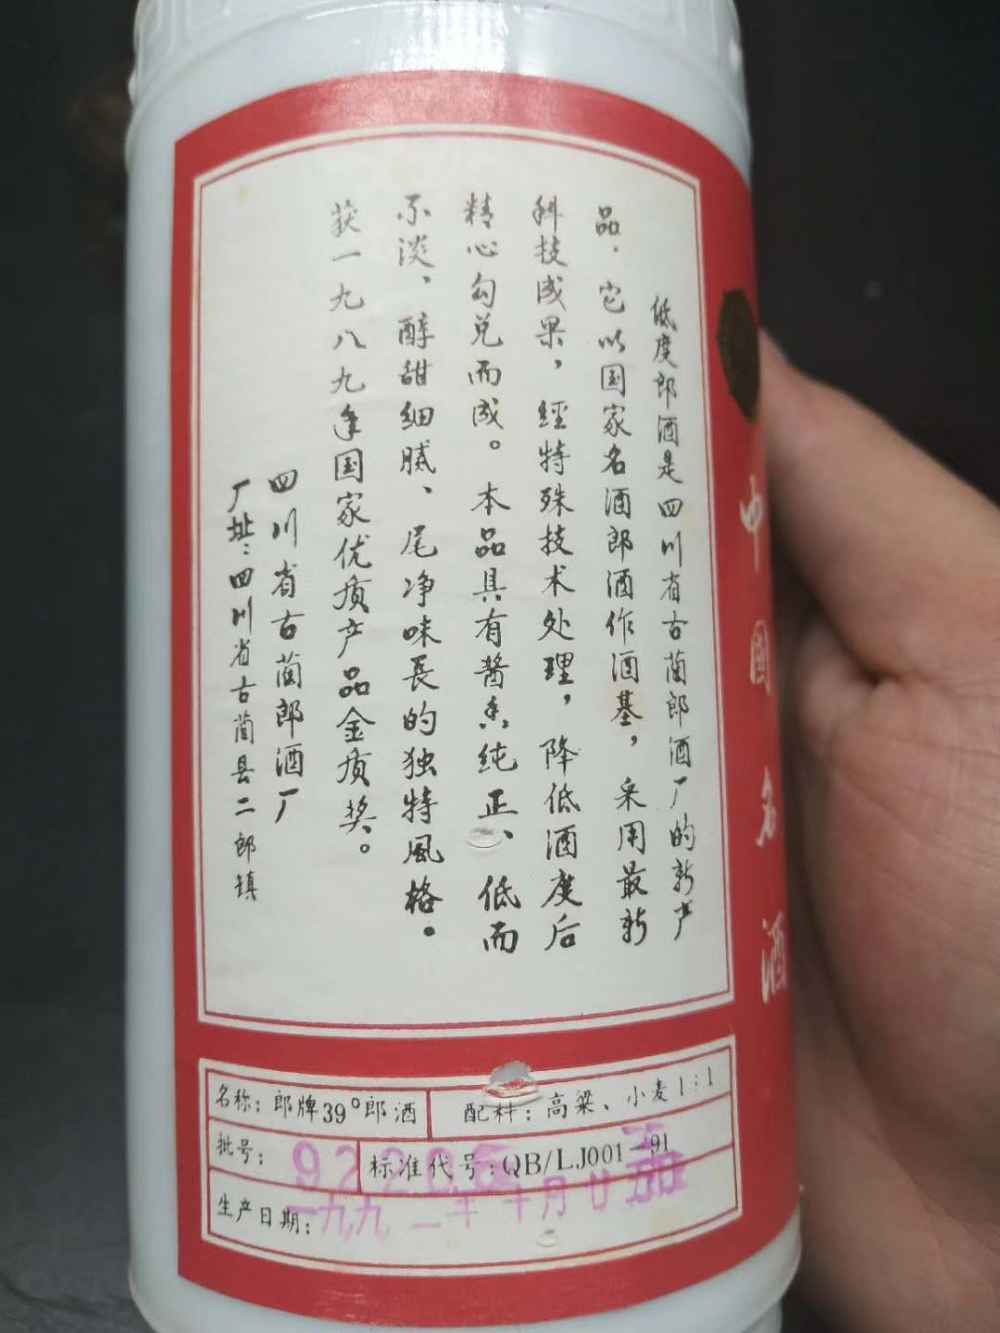 低度郎酒是四川省古蔺郎酒厂的新产
品．它以国家名酒郎酒作酒基，采用最新
科技成果，經特殊技术处理，降低酒度后
精心勾兑而成。本品具有酱香纯正、低而
不淡、醇甜细腻、尾净味長的独特風格。
获一九八九年国家优质产品金质奖。
四川省古蔺郎酒厂
厂址：四川省古蔺县二郎镇
名称：郎牌39°郎酒
配料：高粱、小麦1：1
批号：
标准代号：QB/LJ001－91
生产日期：一九九二年十月廿
中國名酒